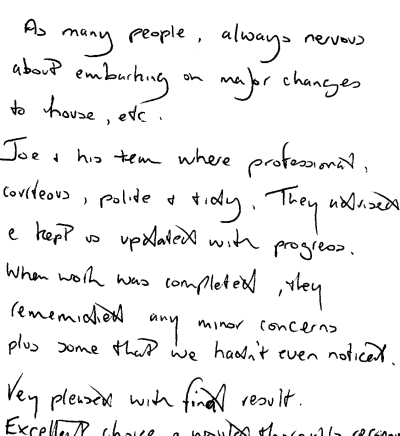 As many people, always nervous
about embarking on major changes
to house, etc.
Joe & his team where professional,
courteous, polite & tidy. They advised
& kept us updated with progress.
When work was completed, they
rememidied any minor concerns
plus some that we hadn't even noticed.
Vey pleased with final result.
Excellent choice & would thoroughly